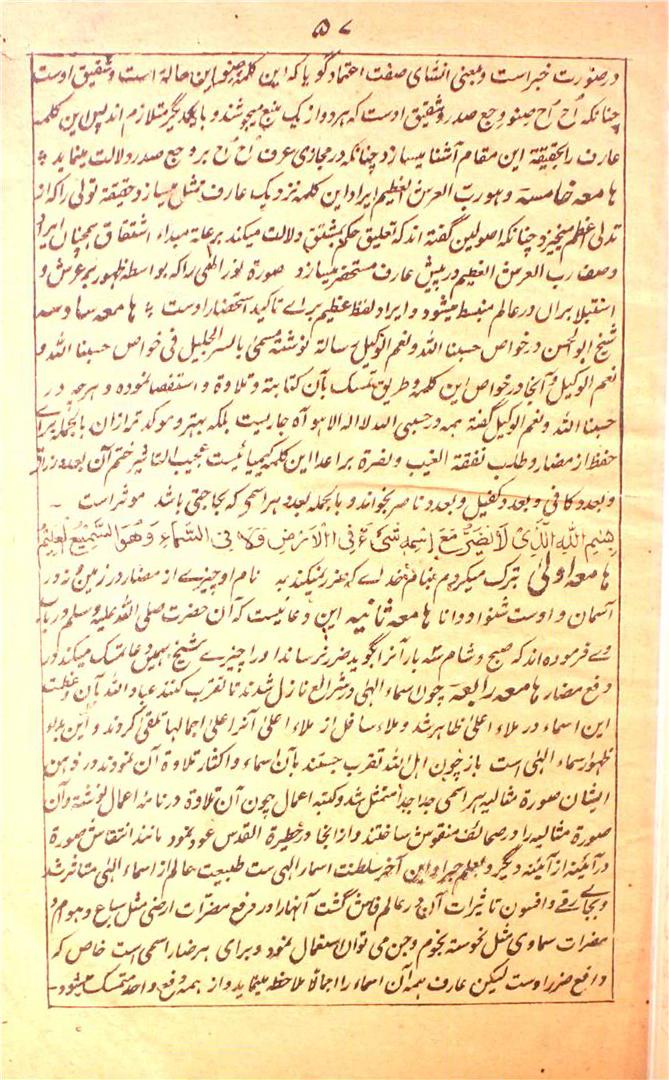 ۵۷
در صورت خبر است و بمعنی انشای صفت اعتماد گویا که این کلمه صنو این حالة است و شقیق اوست
چنانکه اُح اُح صنو وجع صدر و شقیق اوست که هر دو از یک منبع میجوشند و با یکدیگر متلازم اند پس این کلمه
عارف را بحقیقة این مقام آشنا میسازد چنانکه در مجازی عرف اُح اُح بر وجع صدر دلالت مینماید
هامعه خامسة وهو رب العرش العظیم ایراد این کلمه نزدیک عارف متمثل میسازد حقیقة تولی را که از
تدلی اعظم میخیزد چنانکه اصولین گفته اند که تعلیق حکم بمشتق دلالت میکند بر علة مبداء اشتقاق همچنان ایراد
وصف رب العرش العظیم در پیش عارف مستحضر میسازد صورة نور الهی را که بواسطه ظهور بر عرش و
استیلا بران در عالم منبسط میشود و ایراد لفظ عظیم برای تاکید استحضار اوست هامعه سادسه
شیخ ابوالحسن در خواص حسبنا الله ونعم الوکیل رسالة نوشته مسمی بالسر الجلیل فی خواص حسبنا الله و
نعم الوکیل و آنجا در خواص این کلمه و طریق تمسک بآن کتابة و تلاوة و استقصا نموده و هرچه در
حسبنا الله ونعم الوکیل گفته همه در حسبی الله لا اله الا هو آه جاریست بلکه بهتر و موکدتر ازان بالجمله برای
حفظ از مضار و طلب نفقة الغیب و نصرة بر اعدا این کلمه کیمیائیست عجیب التاثیر ختم آن بعدد رزاق
و بعدد کافی و بعدد کفیل و بعدد ناصر بخواند و بالجمله بعدد هر اسمی که بحاجتی باشد موثر است
بِسْمِ اللهِ الَّذِیْ لَا یَضُرُّ مَعَ اسْمِهٖ شَیْءٌ فِی الْاَرْضِ وَلَا فِی السَّمَاءِ وَهُوَ السَّمِیْعُ الْعَلِیْمُ
هامعه اولی تبرک میگردم بنام خدائے که ضرر نمیکند به نام او چیزے از مضار در زمین و نه در
آسمان و اوست شنوا و دانا هامعه ثانیه این دعائیست که آن حضرت صلی الله علیه وسلم در باب
وے فرموده اند که صبح و شام سه بار آنرا بگوید ضرر نرساند او را چیزے شیخ بهمین دعا تمسک میکند در
دفع مضار هامعه رابعه چون اسماء الهی و شرائع نازل شدند تا تقرب کنند عباد الله بآن و عظمت
این اسماء در ملاء اعلی ظاهر شد و ملاء سافل از ملاء اعلی آنرا علی اجمالها تلقی کردند و این بدو
ظهور اسماء الهی است باز چون اهل الله تقرب جستند بآن اسماء و اکثار تلاوة آن نمودند در ذهن
ایشان صورة مثالیه هر اسمی جدا جدا متمثل شد و کتبه اعمال چون آن تلاوة در نامهٔ اعمال نوشته و آن
صورة مثالیه را در صحائف منقوش ساختند و از انجا در حظیرة القدس عود نمود مانند انتقاش صورة
در آئینه از آئینه دیگر و این آخر سلطنت اسماء الهی ست طبیعت عالم از اسماء الهی متاثر شد
و بجاے رقے و افسون تاثیرات آن در عالم فاش گشت آنها را در دفع مضرات ارضی مثل سباع و هوام و
مضرات سماوی مثل نحوسة نجوم و جن می توان استعمال نمود و برای هر ضار اسمی است خاص که
دافع ضرر اوست لیکن عارف همه آن اسماء را اجمالا ملاحظه مینماید و از همه دفع واحد متمسک میشود